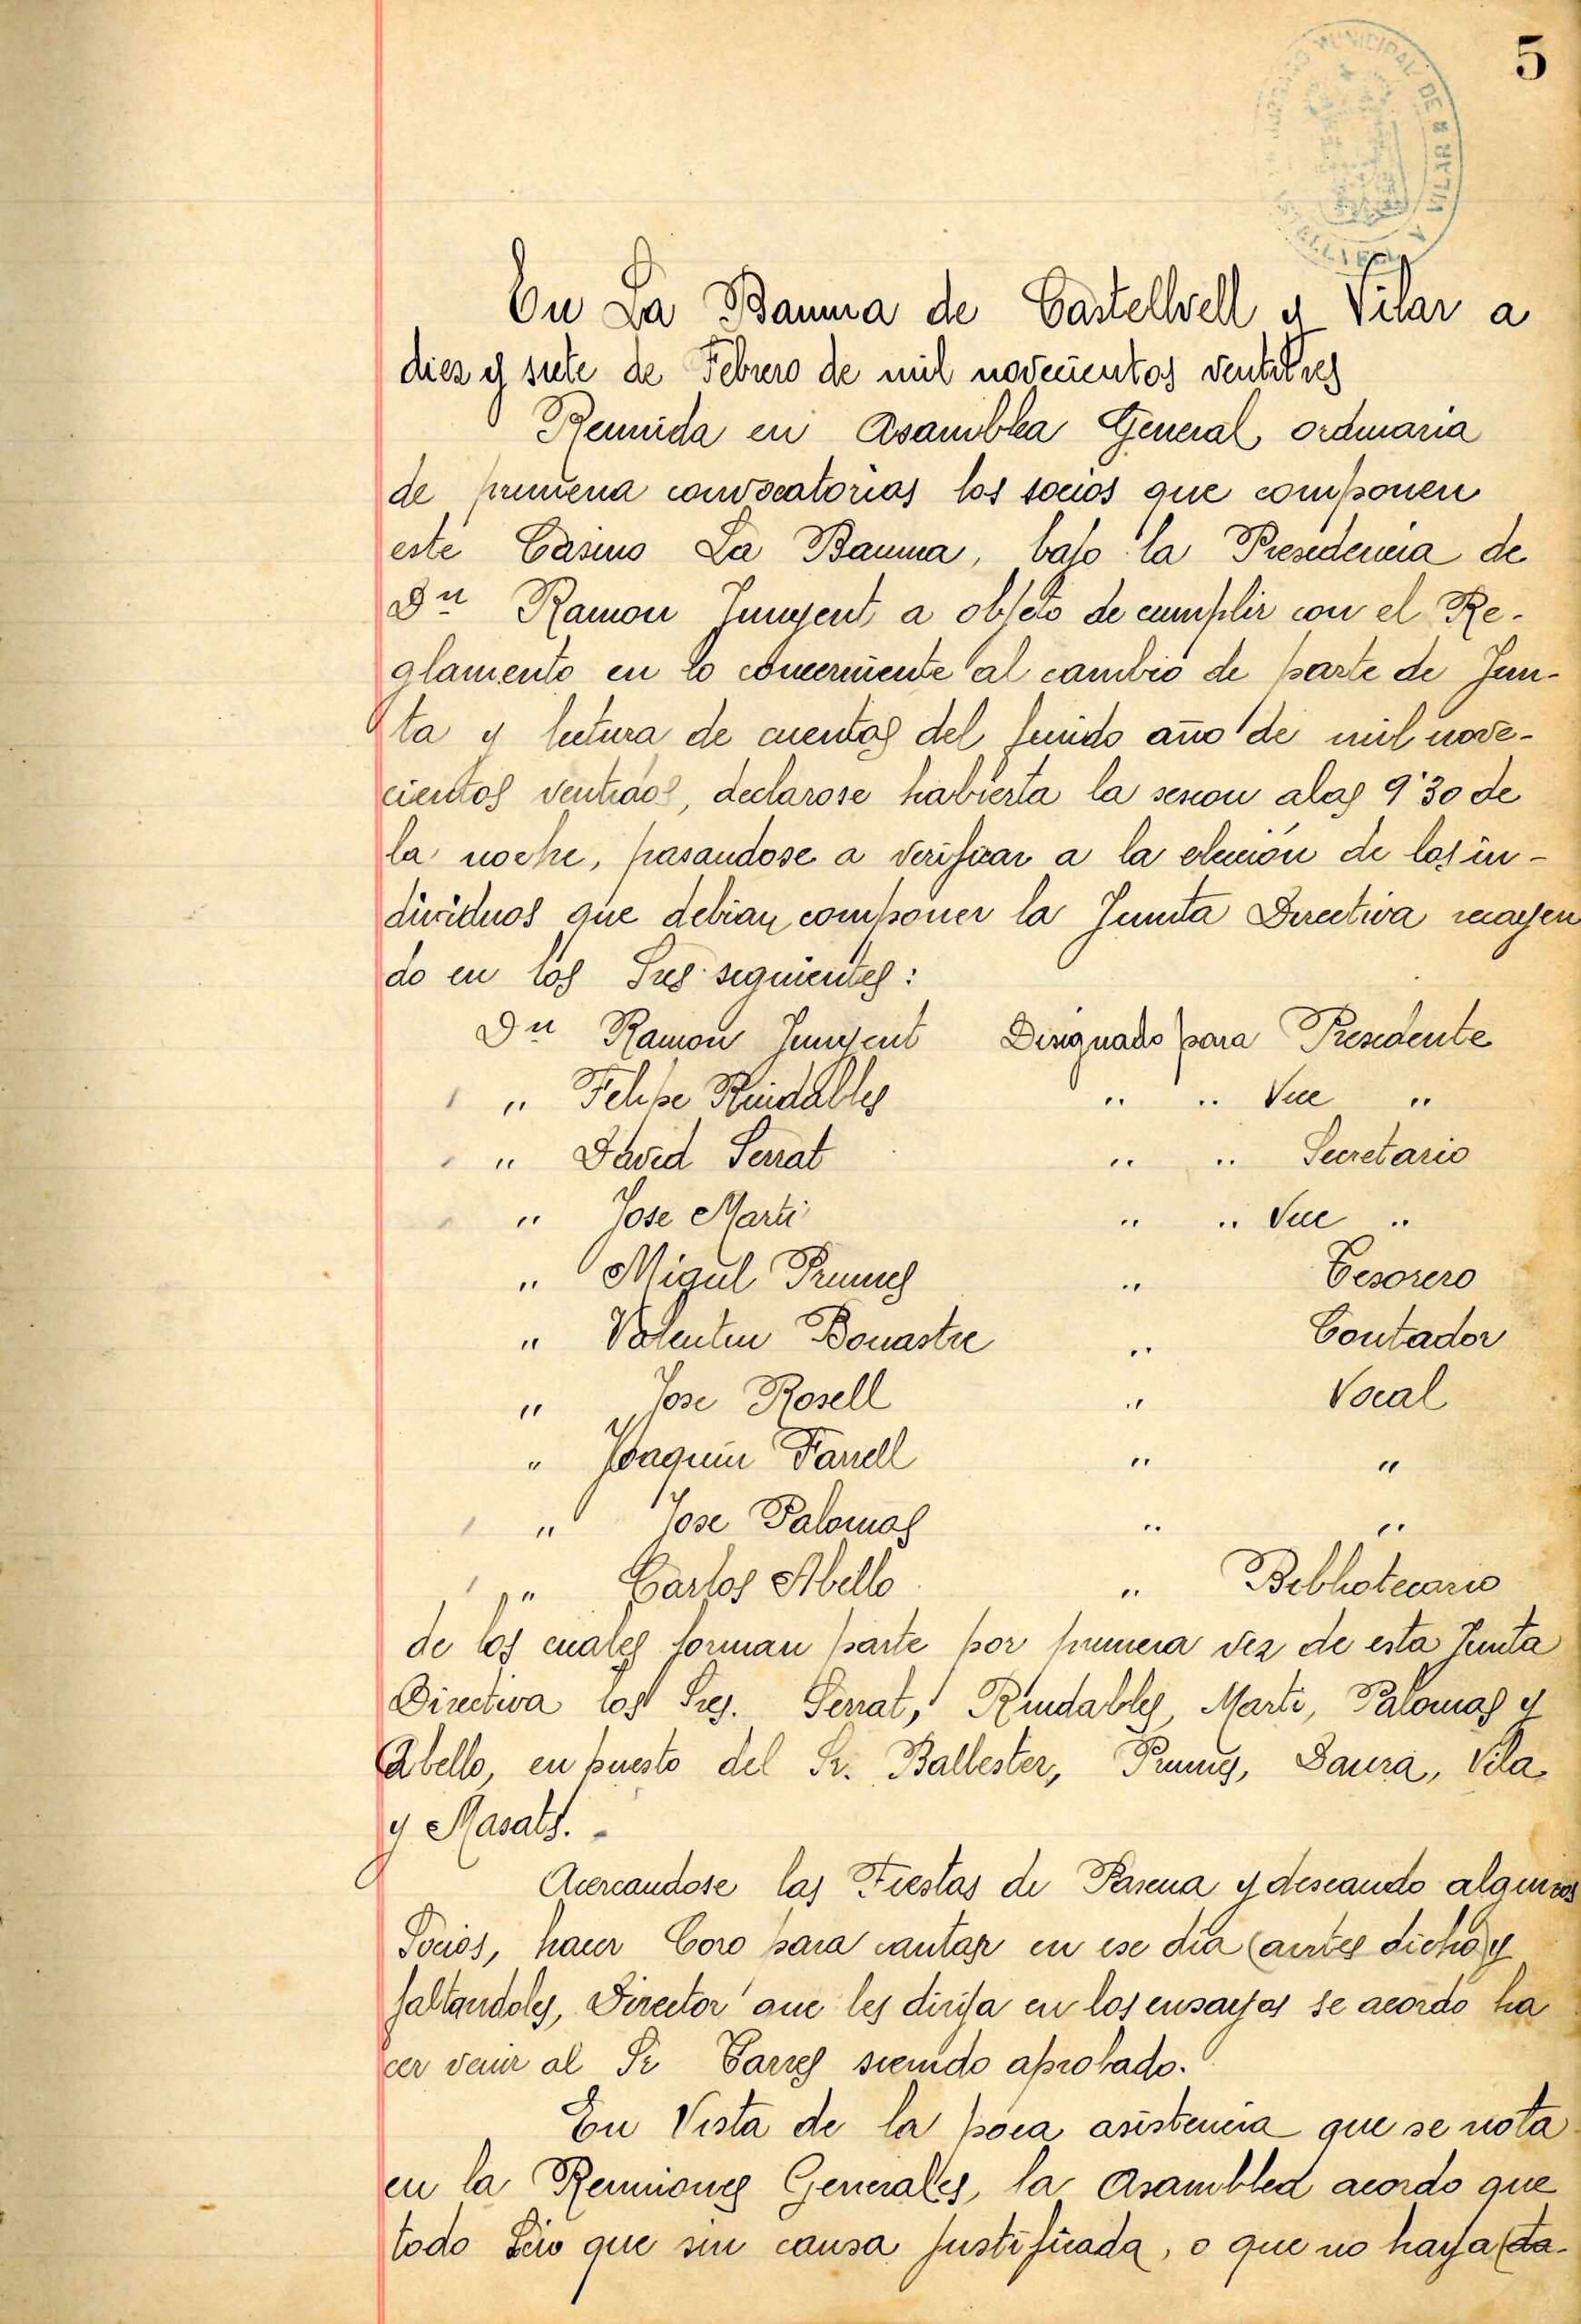 5
MUNICIPAL DE
En La Bauma de Castellvell y Vilar a
diez y siete de Febrero de mil novecientos ventitres
Reunida en Asamblea General, ordinaria
de primera convocatorias los socios que componen
este Casino La Bauma, bajo la Presidencia de
Dn Ramon Junyent, a objeto de cumplir con el Re-
glamento en lo concerniente al cambio de parte de Jun-
ta y lectura de cuentas del finido año de mil nove-
cientos ventidos, declarose habierta la sesion alas 9'30 de
la noche, pasandose a verificar a la elección de los in-
dividuos que debian componer la Junta Directiva recayen
do en los Sres siguientes:
Dn Ramon Junyent Disignado para Presidente
" Felipe Rindables " " Vice "
" David Serrat " " Secretario
" Jose Marti " " Vice "
" Migul Prunes " Tesorero
" Valentin Bonastre " Contador
" Jose Rosell " Vocal
" Joaquin Farrell " "
" Jose Palomas " "
" Carlos Abello " Bibliotecario
de los cuales forman parte por primera vez de esta Junta
Directiva los Sres. Serrat, Rindables, Marti, Palomas y
Abello, en puesto del Sr. Ballester, Prunes, Daura, Vila
y Masats. -
Acercandose las Fiestas de Pascua y deseando algunos
Socios, hacer Coro para cantar en ese dia (antes dicho) y
faltandoles, Director que les dirija en los ensayos se acordó ha
cer venir al Sr Tarres siendo aprobado.
En Vista de la poca asistencia que se nota
en la Reuniones Generales, la Asamblea acordo que
todo Socio que sin causa justificada, o que no haya (da-